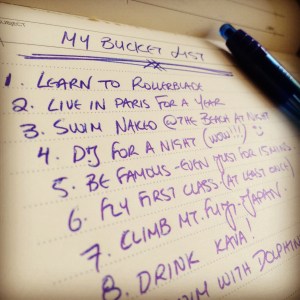 MY BUCKET LIST
1. LEARN TO ROLLERBLADE
2. LIVE IN PARIS FOR A YEAR
3. SWIM NAKED @ THE BEACH AT NIGHT
4. DJ FOR A NIGHT (WOW!!!) :)
5. BE FAMOUS - EVEN JUST FOR 15 MINS.
6. FLY FIRST CLASS (AT LEAST ONCE)
7. CLIMB MT. FUJI - JAPAN.
8. DRINK KAVA!
SWIM WITH DOLPHIN